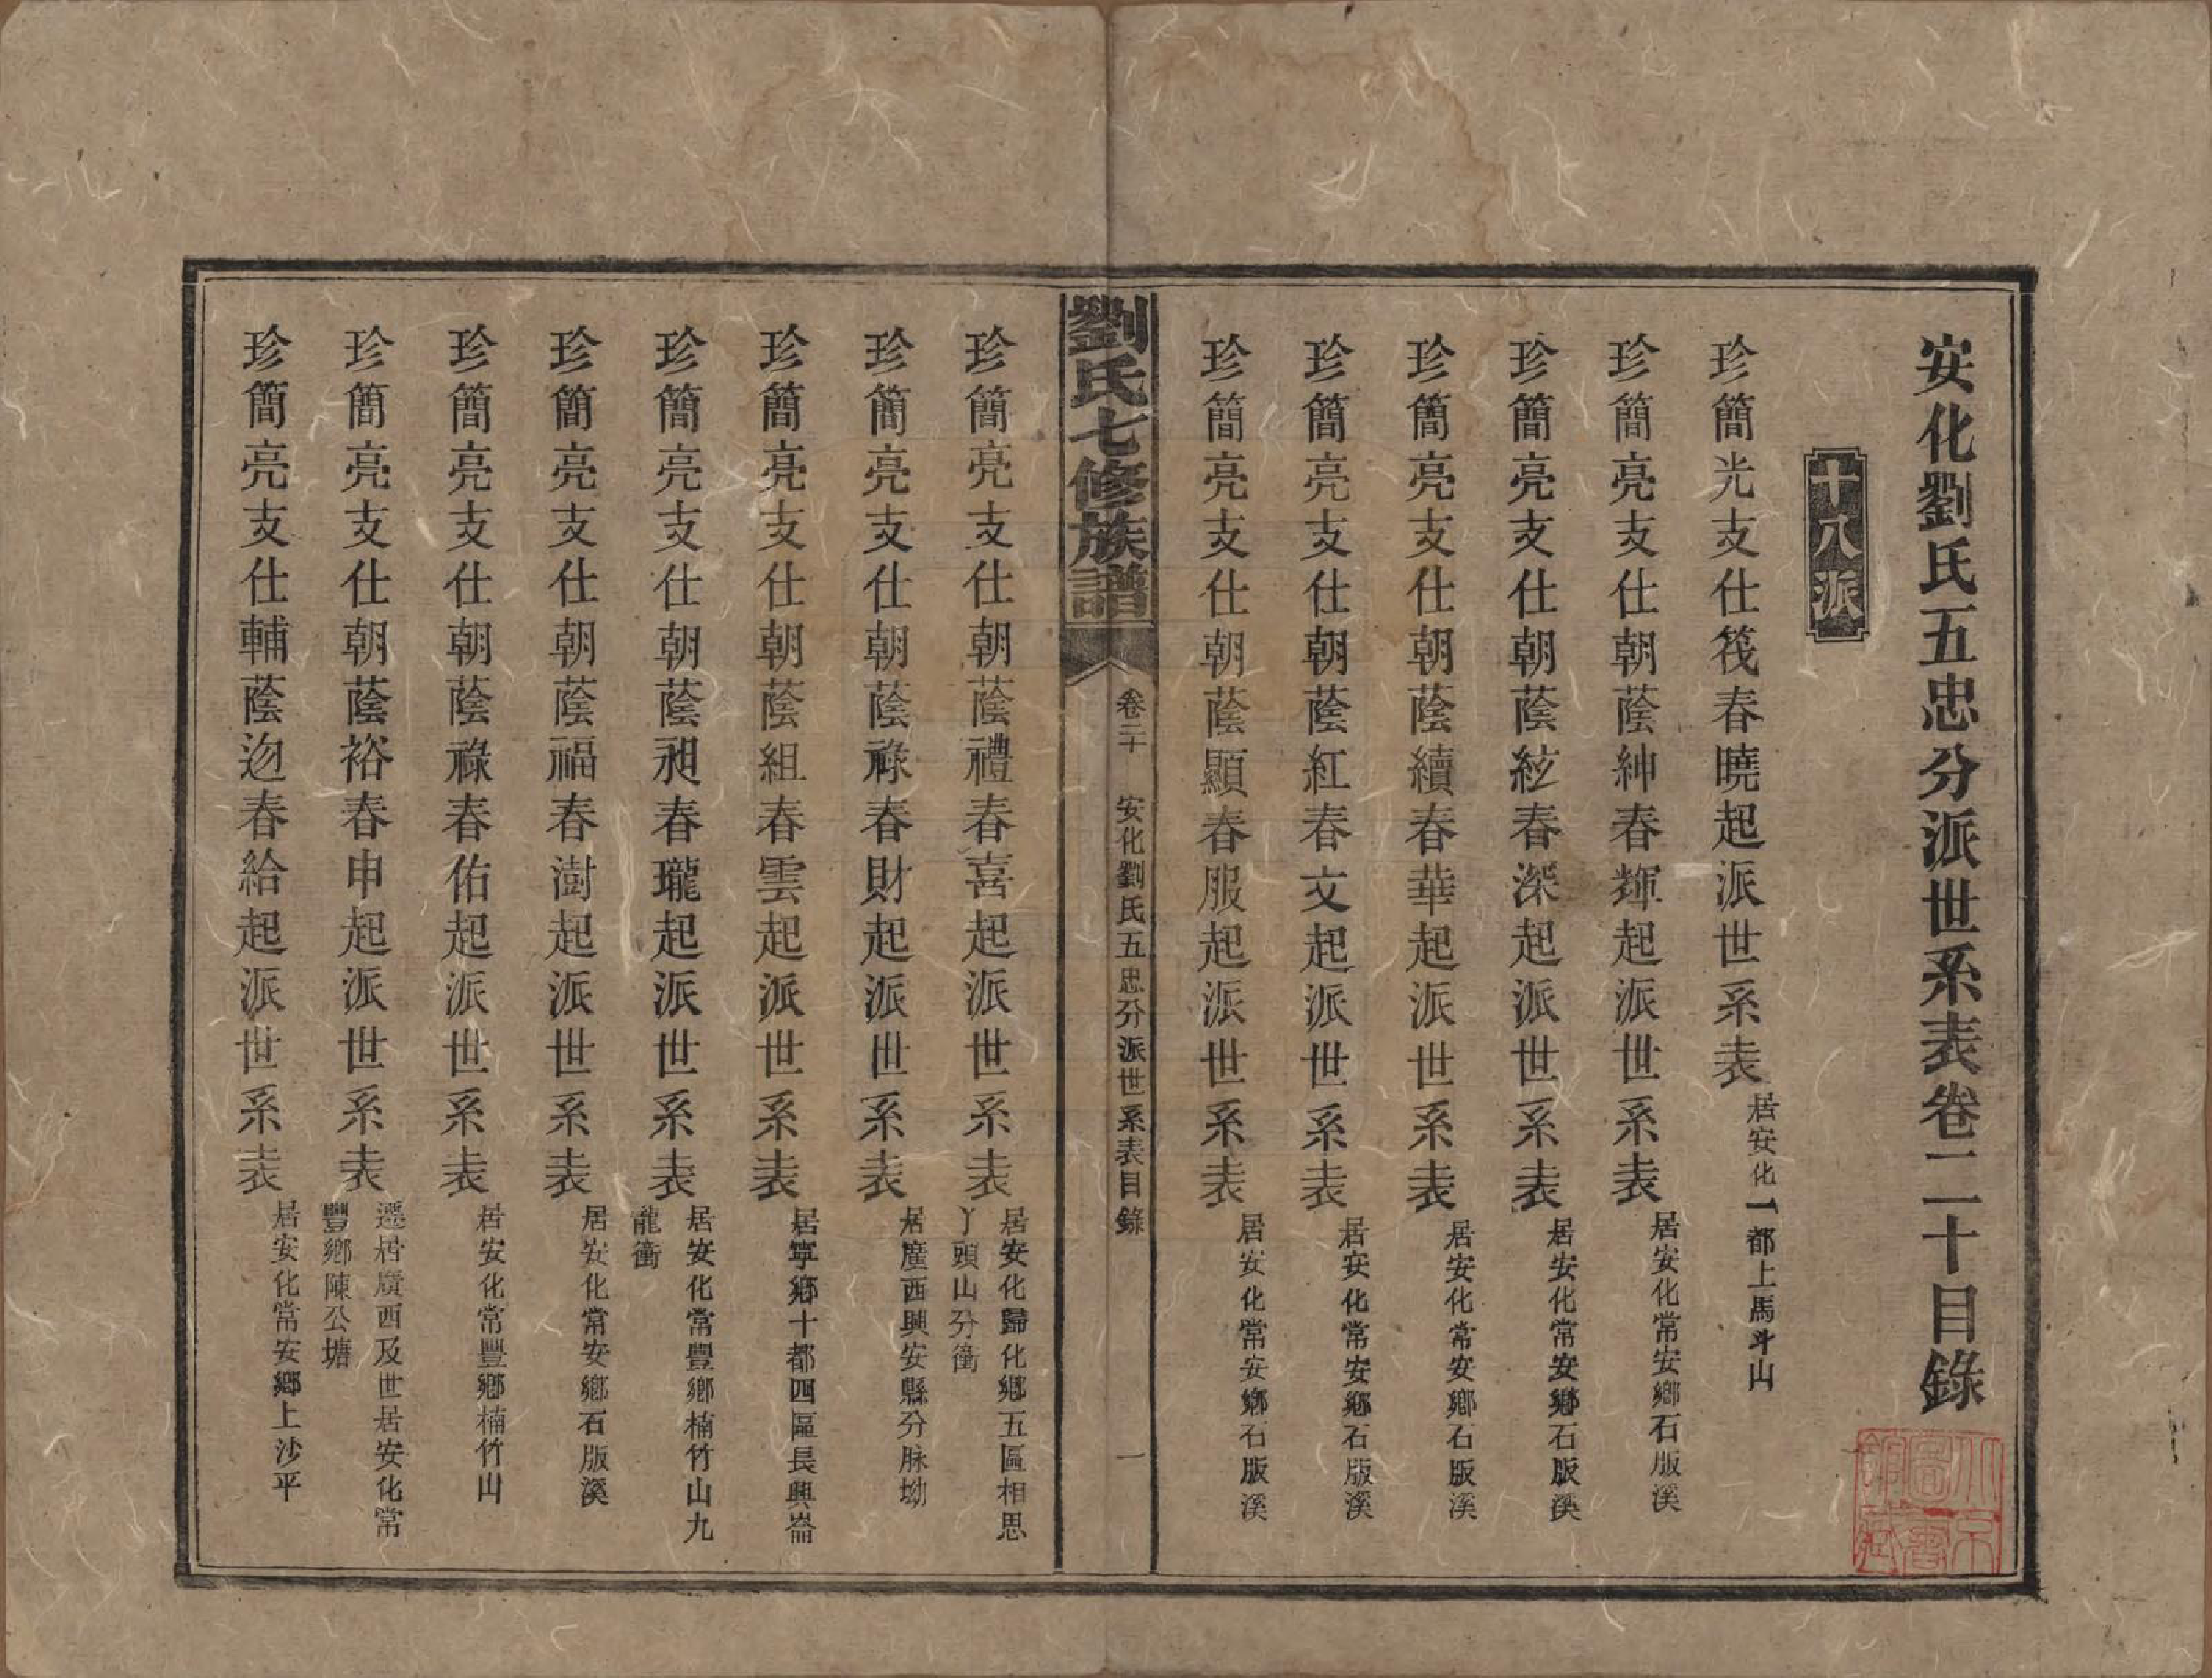 安化劉氏五忠分派世系表卷二十目錄
十八派
珍簡光支仕筏春曉起派世系表 居安化一都上馬斗山
珍簡亮支仕朝蔭紳春輝起派世系表 居安化常安鄉石版溪
珍簡亮支仕朝蔭紋春深起派世系表 居安化常安鄉石版溪
珍簡亮支仕朝蔭續春華起派世系表 居安化常安鄉石版溪
珍簡亮支仕朝蔭紅春文起派世系表 居安化常安鄉石版溪
珍簡亮支仕朝蔭顯春服起派世系表 居安化常安鄉石版溪
劉氏七修族譜 卷二十 安化劉氏五忠分派世系表目錄 一
珍簡亮支仕朝蔭禮春喜起派世系表 居安化歸化鄉五區相思
丫頭山分衝
珍簡亮支仕朝蔭祿春財起派世系表 居廣西興安縣分脉坳
珍簡亮支仕朝蔭組春雲起派世系表 居寧鄉十都四區長興崙
珍簡亮支仕朝蔭昶春瓏起派世系表 居安化常豐鄉楠竹山九
龍衝
珍簡亮支仕朝蔭福春澍起派世系表 居安化常安鄉石版溪
珍簡亮支仕朝蔭祿春佑起派世系表 居安化常豐鄉楠竹山
珍簡亮支仕朝蔭裕春申起派世系表 遷居廣西及世居安化常
豐鄉陳公塘
珍簡亮支仕輔蔭迩春給起派世系表 居安化常安鄉上沙平
北京圖書館藏